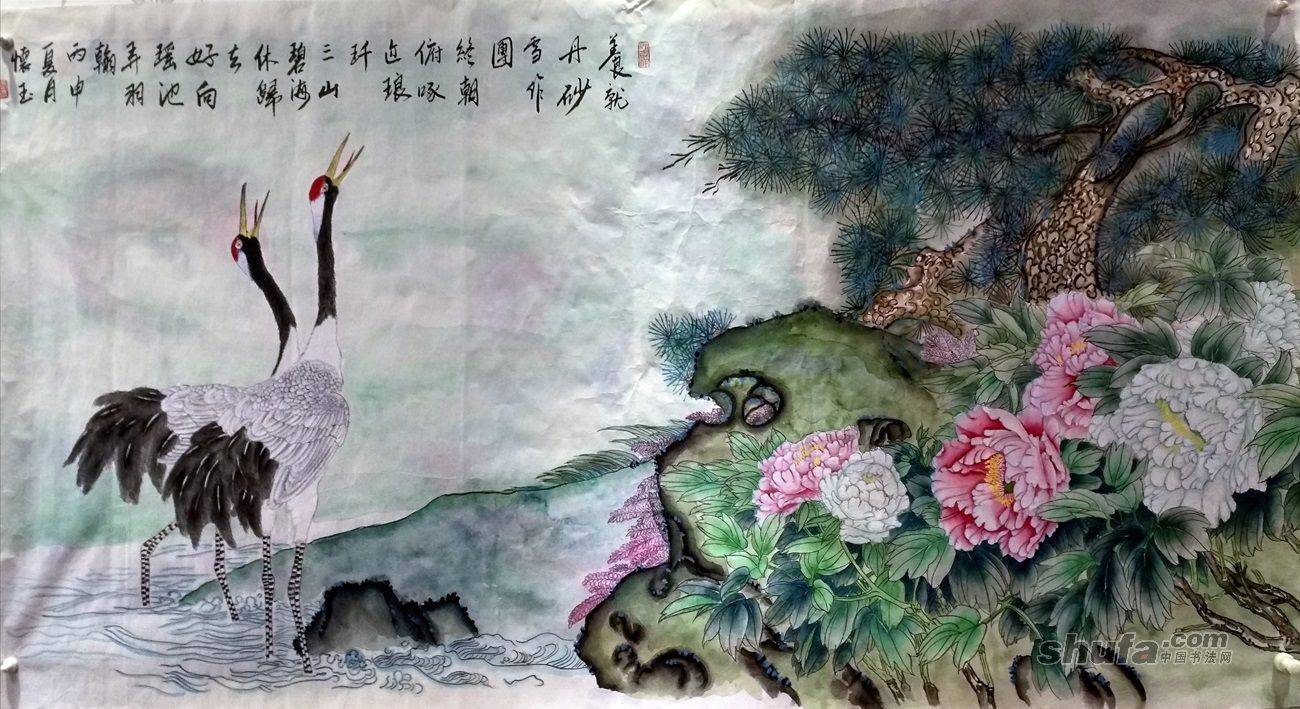 養就
丹砂
雪作
團
終朝
俯啄
近琅
玕
三山
碧海
休歸
去
好向
瑶池
弄羽
翰
丙申
夏月
懷玉
shufa.com
中国书法网